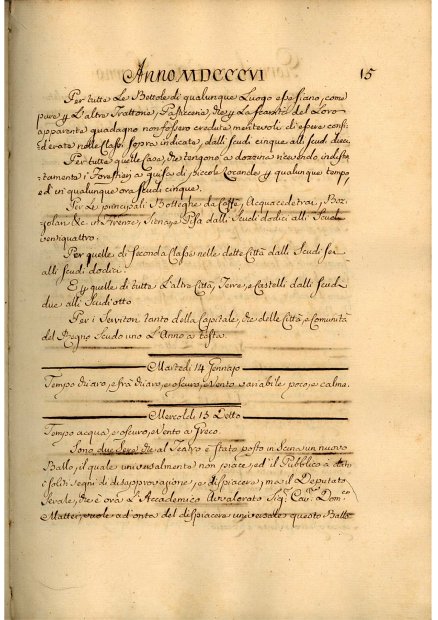 Anno MDCCCVI
15
Per tutte Le Bettole di qualunque Luogo esse siano, come
pure p L'altre Trattorie, Pasticcerie, che p La scarsità del Loro
apparente guadagno non fossero credute meritevoli di essere consi,
derate nelle Classi sopra indicate, dalli scudi cinque alli scudi dieci.
Per tutte quelle Case, che tengono a dozzina ricevendo indistin,
tamente i Forestieri a guisa di piccole Locande p qualunque tempo,
ed in qualunque ora scudi cinque.
Per Le principali Botteghe da Caffè, Acquacedratai, Boz,
zolari &c. in Firenze, Siena, e Pisa dalli scudi dodici alli Scudi
ventiquattro.
Per quelle di seconda Classe nelle dette Città dalli Scudi sei
alli scudi dodici.
E p quelle di tutte L'altre Città, Terre, e Castelli dalli scudi
due alli Scudi otto
Per i Servitori tanto della Capitale, che delle Città, e Comunità
del Regno Scudo uno L'Anno a testa.
Martedì 14 Gennajo
Tempo chiaro, e frà chiaro, e oscuro, e Vento variabile poco, e calma.
Mercoldì 15 Detto
Tempo acqua, e oscuro, e Vento a Greco.
Sono due Sere che al Teatro è stato posto in Scena un nuovo
Ballo, il quale universalmente non piace, ed il Pubblico a dato
i soliti segni di disapprovazione, e dispiacere, ma il Deputato
Serale, che è ora L'Accademico Avvalorato Sig.r Cav.r Dom.co
Mattei, vuole ad onta del dispiacere universale questo Ballo